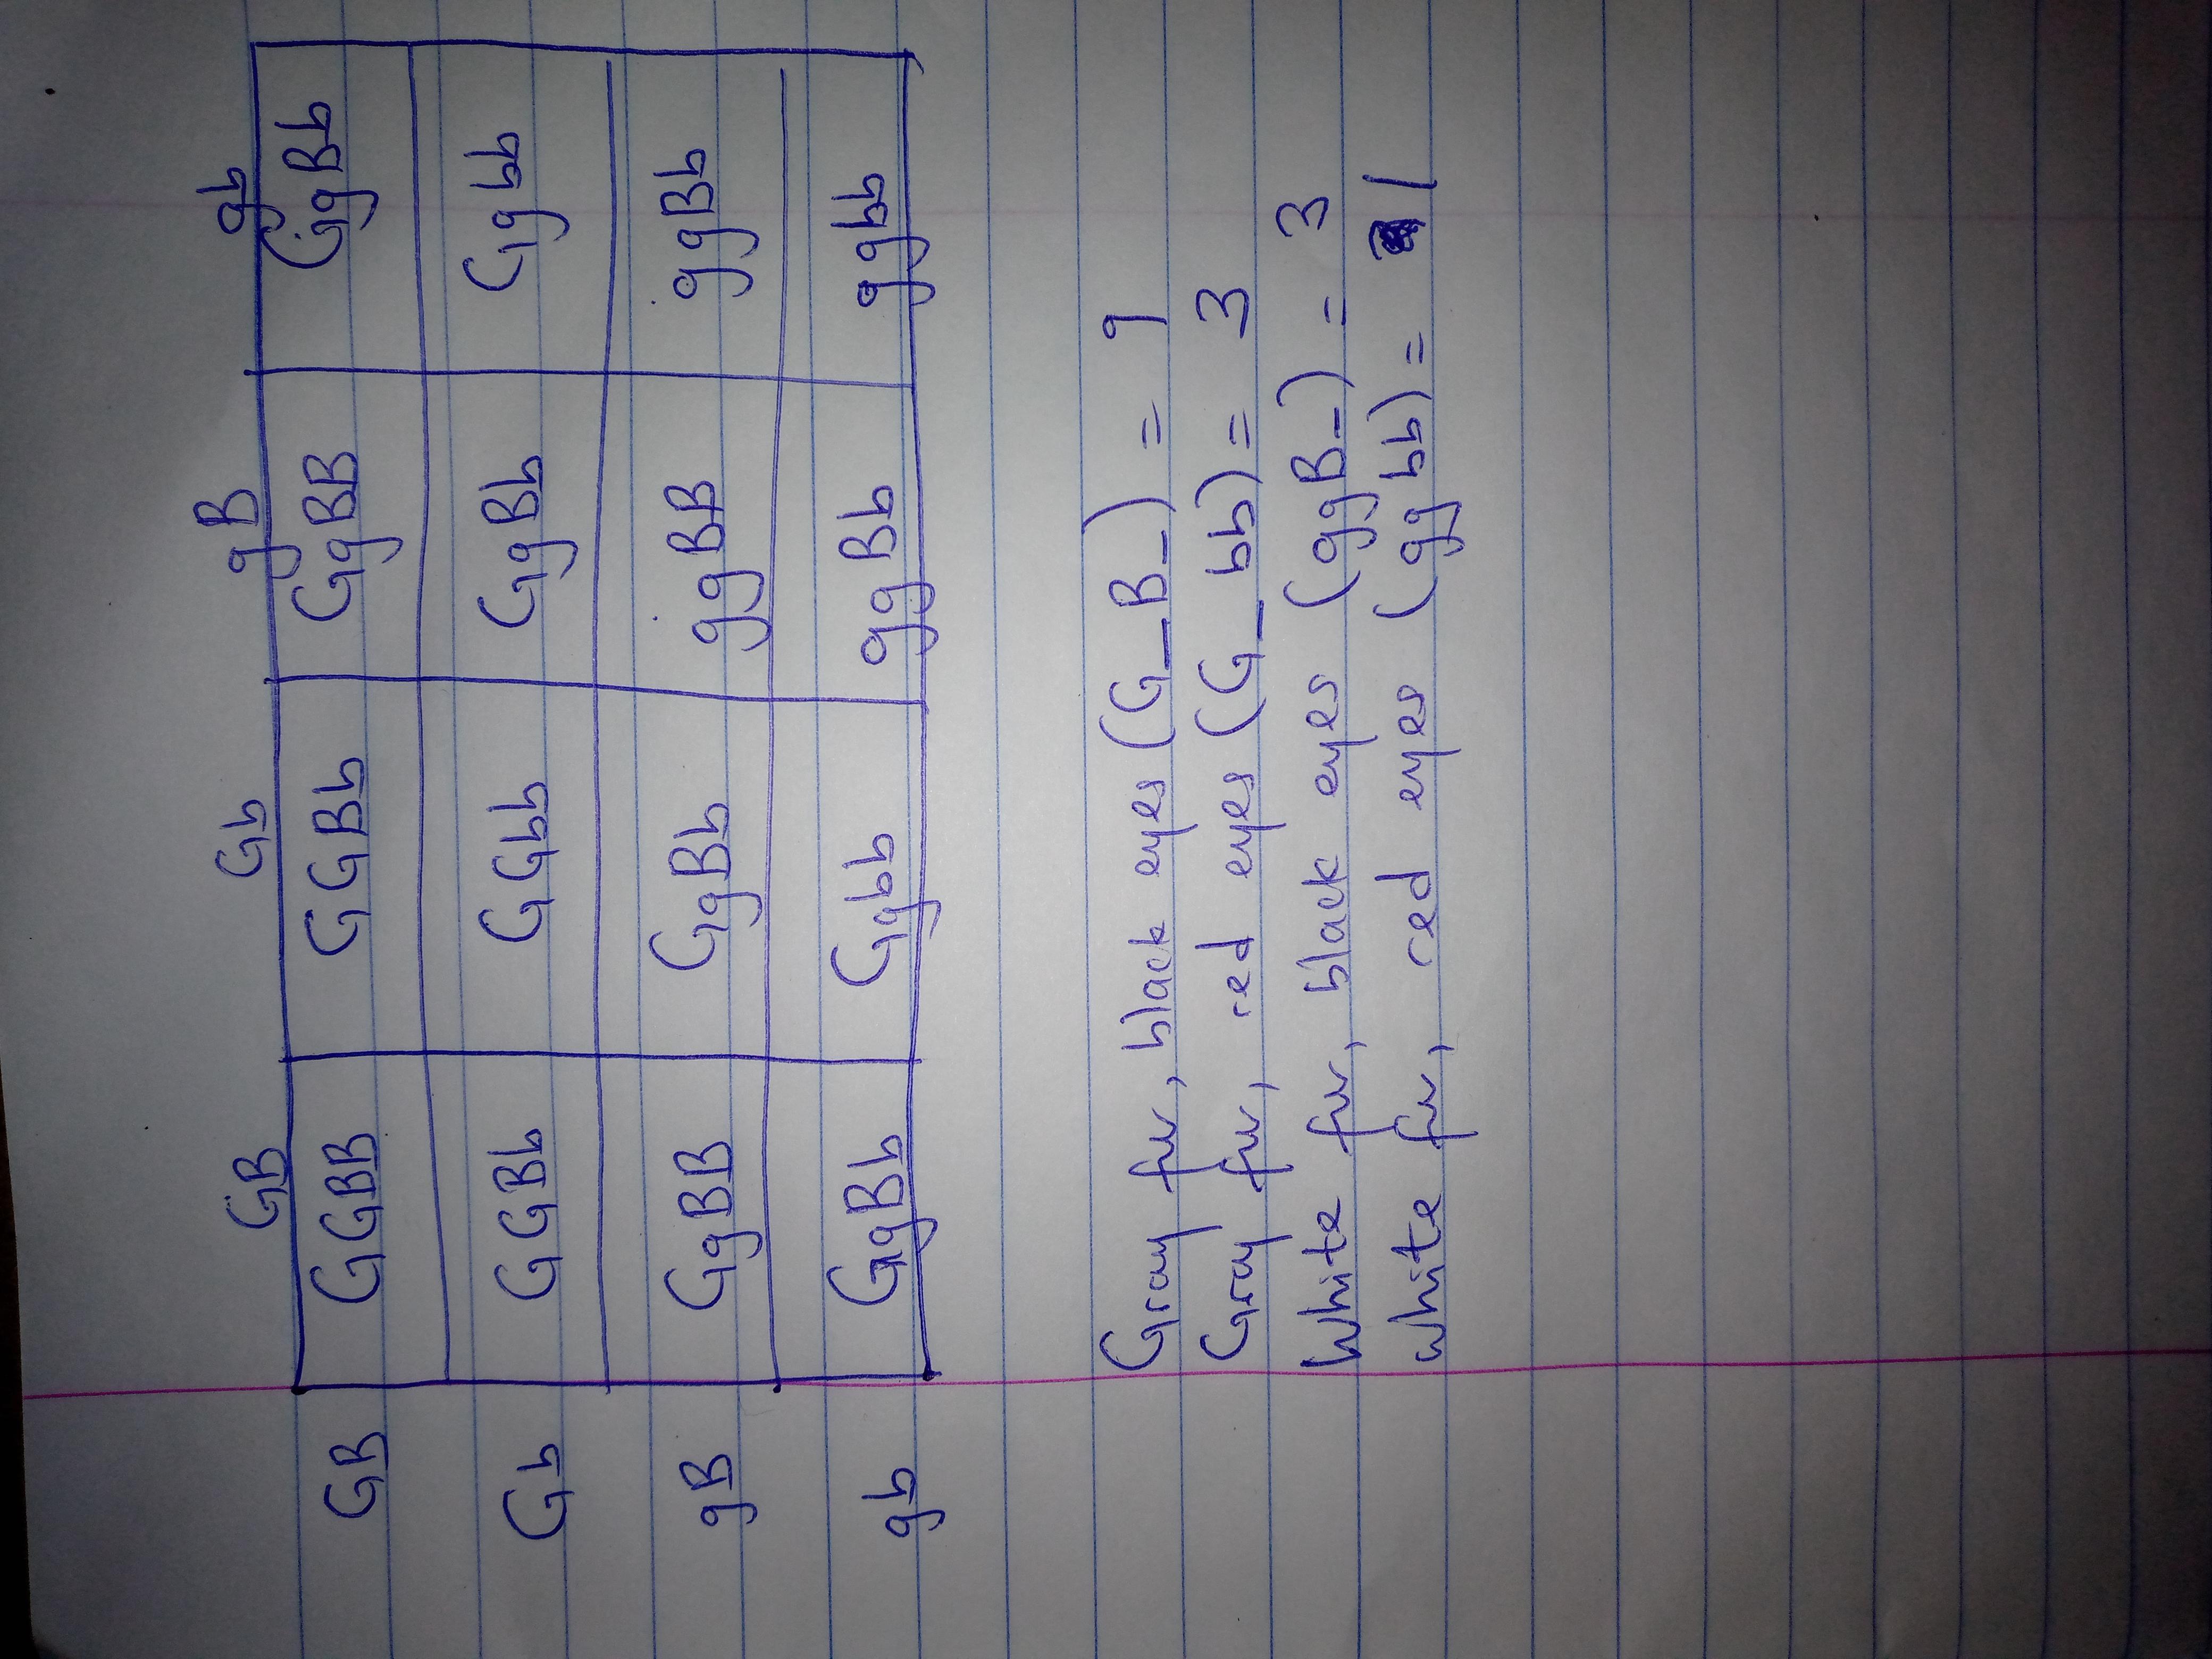 GB Gb gB gb
GB GGBB GGBb GgBB GgBb
Gb GGBb GGbb GgBb Ggbb
gB GgBB GgBb ggBB ggBb
gb GgBb Ggbb ggBb ggbb
Gray fur, black eyes (G_B_) = 9
Gray fur, red eyes (G_bb) = 3
White fur, black eyes (ggB_) = 3
white fur, red eyes (gg bb) = 1